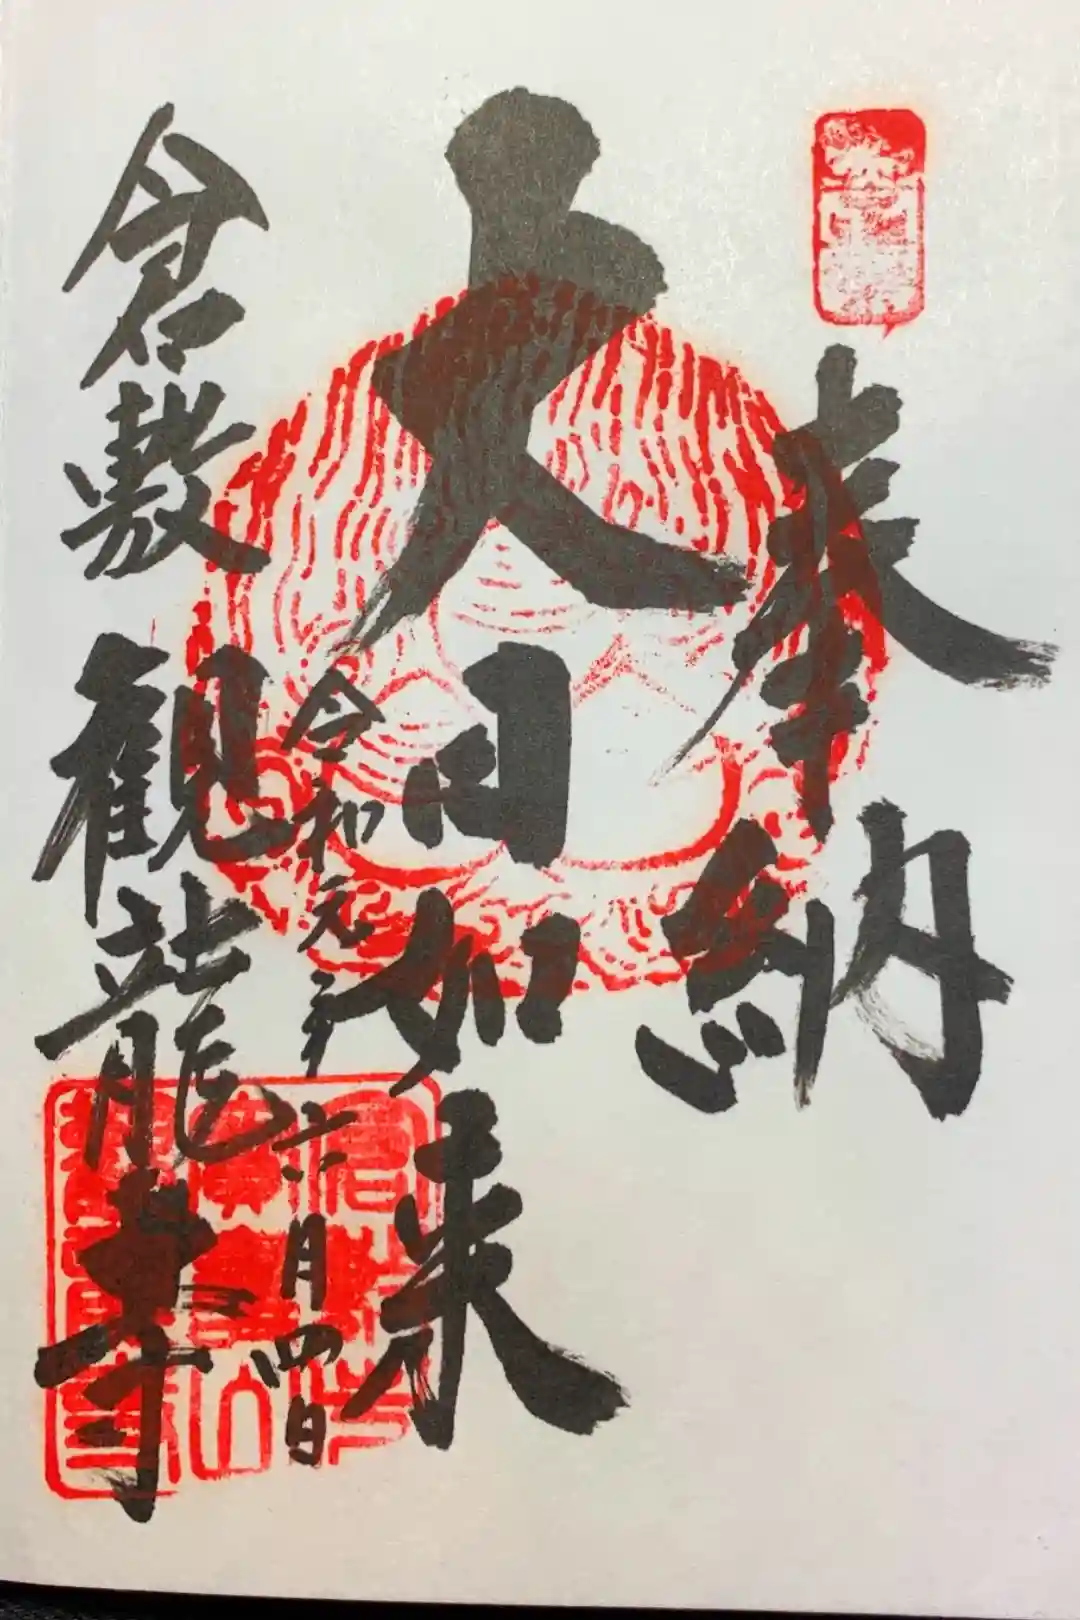 奉納
大日如来
令和元年六月四日
倉敷観龍寺